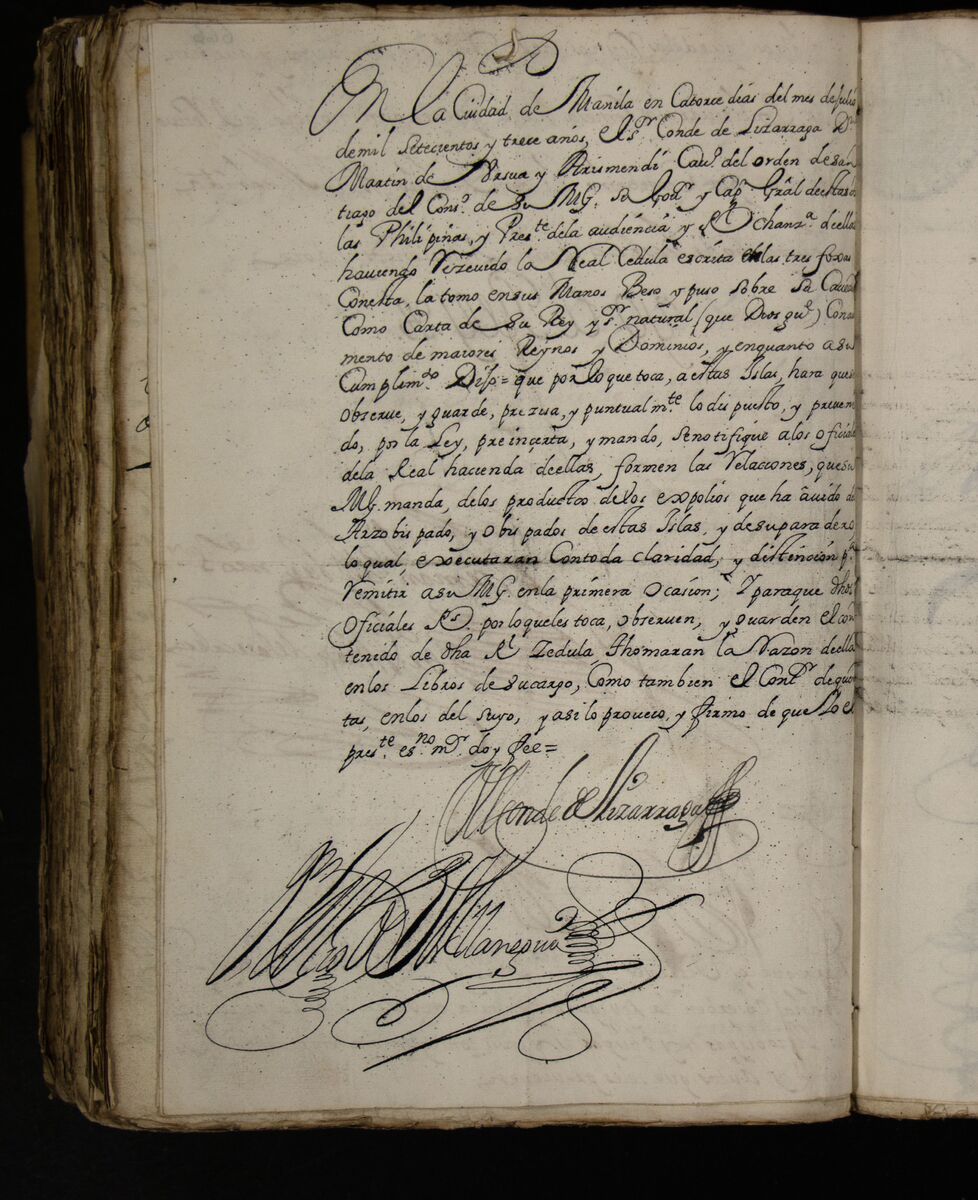 En la Ciudad de Manila en Catorce dias del mes de Julio
de mil Setecientos y trece años, el sr Conde de Lizarraga Dn
Martin de Vrsua y Arismendi Cavo. del orden de san
tiago del Conso. de su Mg. sa Govr. y Capn. Gral de estas Is
las Philipinas, y Preste. dela audiencia y Rl Chanza. deellas
haviendo Rezevido la Real Cedula escrita en las tres foxas
Conesta, la tomo en sus Manos Beso y puso sobre sa Caveza
Como Carta de su Rey y sr. natural (que Dios gue.) Con au
mento de maiores Reynos y Dominios, y enquanto a su
Cumplimdo. Dijo = que por lo que toca, a estas Islas, hara que se
observe, y guarde, prezisa, y puntual mte lo dispuesto, y preveni
do, por la Ley, preincerta, y mando, se notifique alos oficiales
dela Real hacienda deellas, formen las Relaciones, que su
Mg. manda, delos productos de los expolios que ha avido de
Arzobispado, y obispados de estas Islas, y de su paradero
lo qual, executaran Con toda claridad, y distincion pa.
Remitir a su Mg. en la primera ocasion; Y paraque dhos
oficiales Rs. por lo que les toca, observen, y guarden el con
tenido de dha Rl Zedula thomaran la Razon de ella
en los Libros de su cargo, Como tambien el Contr. de quen
tas, en los del suyo, y asi lo proveio, y firmo de que Yo el
preste. esno. mr. doy fee =
El Conde de Lizarraga